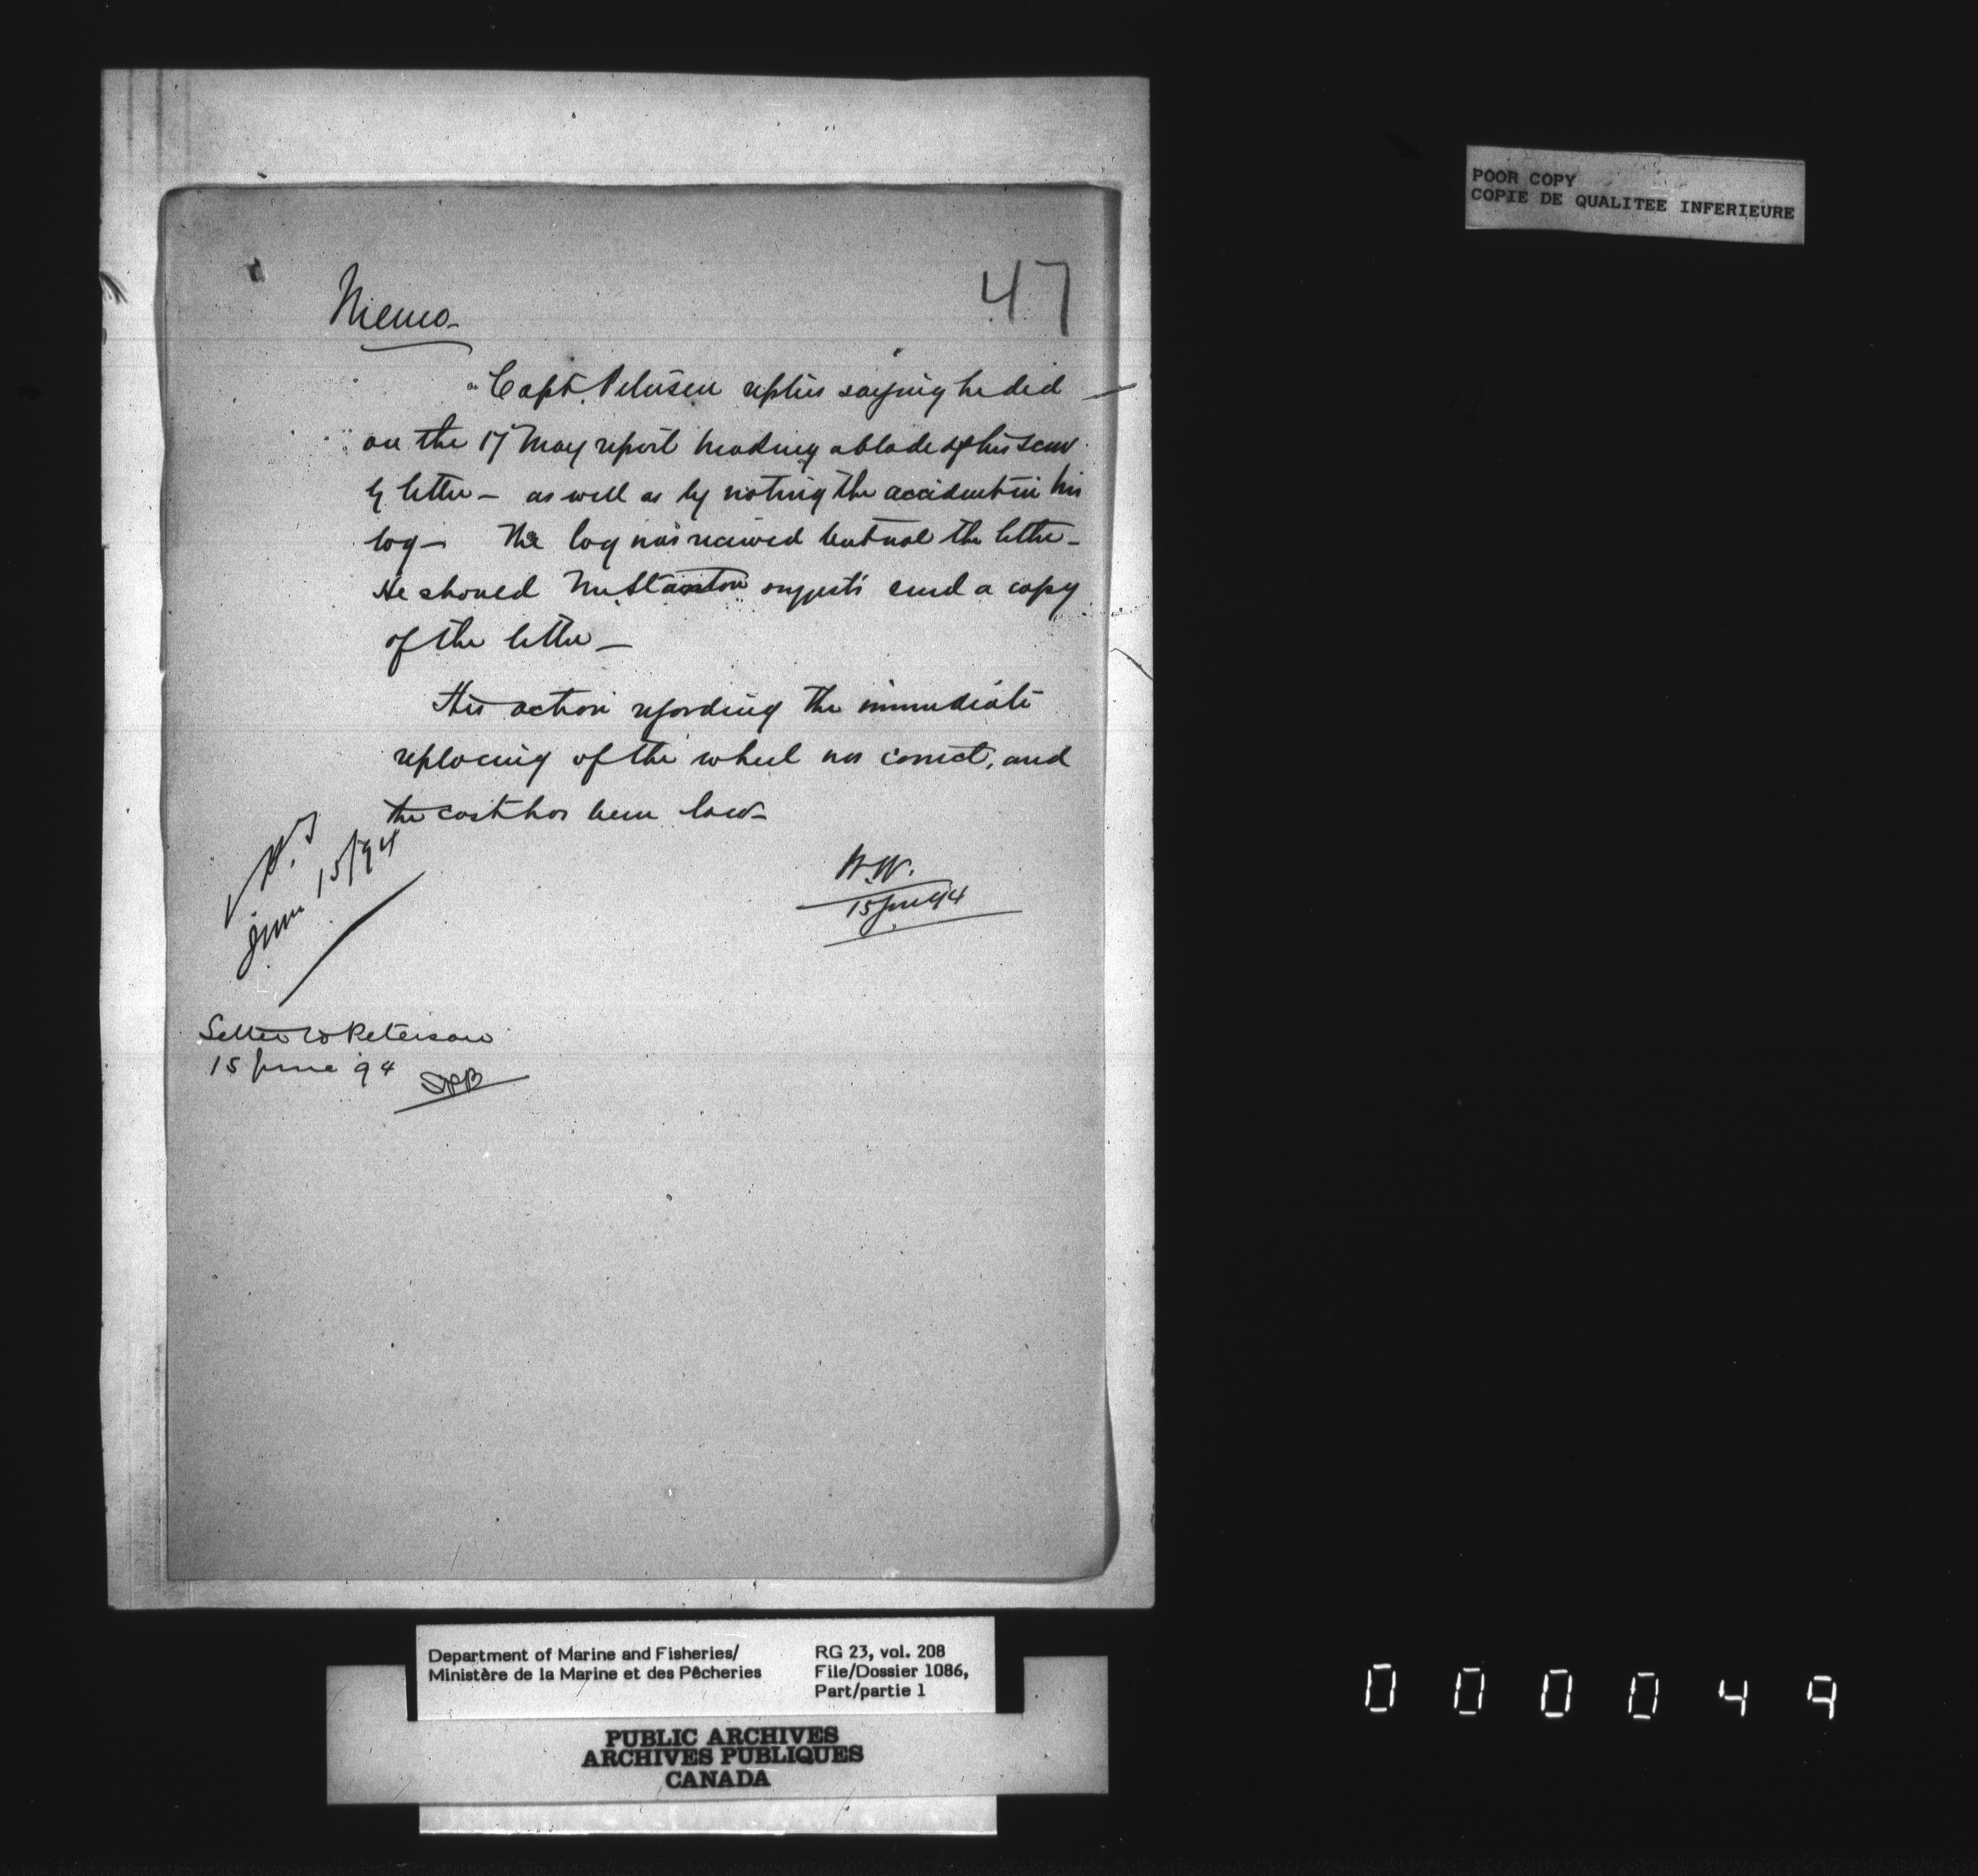 POOR COPY
COPIE DE QUALITEE INFERIEURE
47
Memo
Capt. Petersen replies saying he did
on the 17 May report breaking a blade of his screw
by letter – as well as by noting the accident in his
log – The log was received but not the letter –
He should Mr Stanton suggests send a copy
of the letter –
His action regarding the immediate
replacing of the wheel was correct, and
the cost has been low –
June 15/94
W.W.
15 June 94
Letter to Peterson
15 June 94
Department of Marine and Fisheries/
Ministère de la Marine et des Pêcheries
RG 23, vol. 208
File/Dossier 1086,
Part/partie 1
PUBLIC ARCHIVES
ARCHIVES PUBLIQUES
CANADA
000049